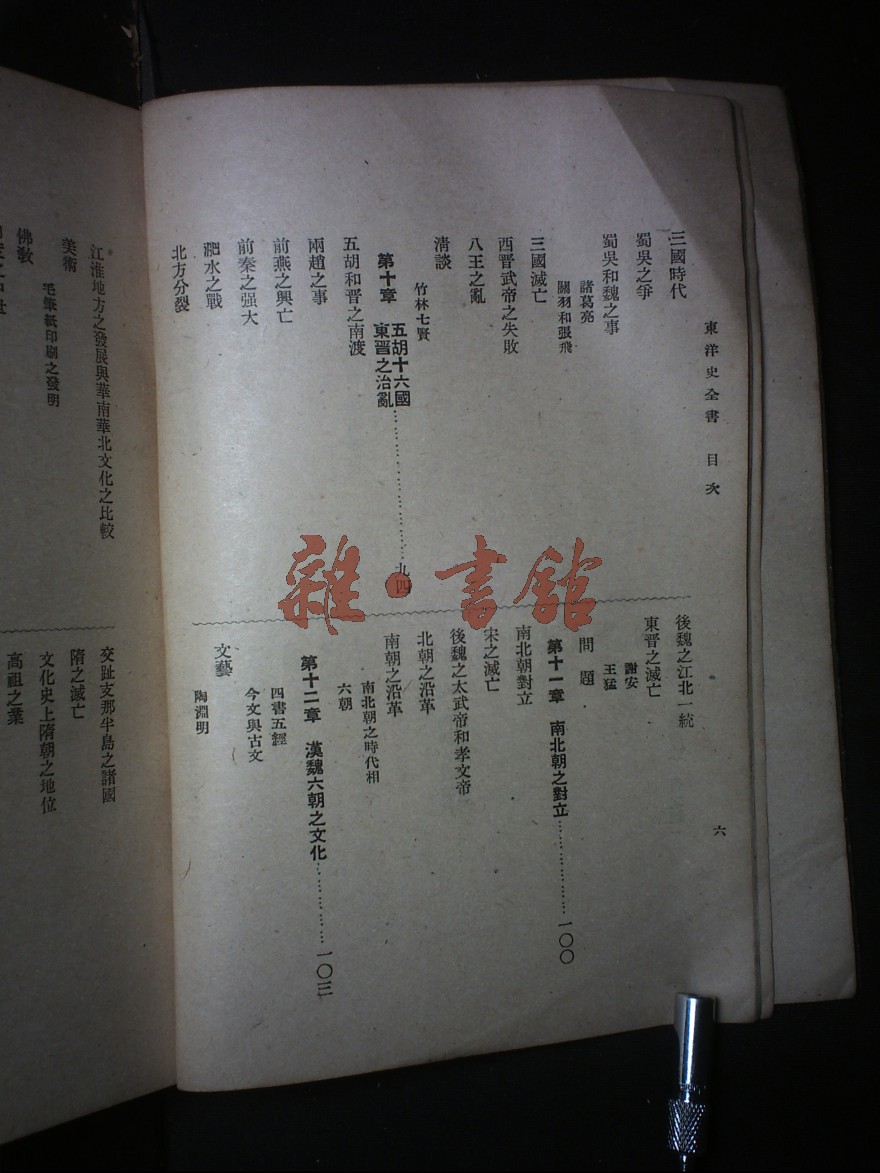 東洋史全書 目次
六
三國時代
蜀吳之爭
蜀吳和魏之事
諸葛亮
關羽和張飛
三國滅亡
西晉武帝之失敗
八王之亂
清談
竹林七賢
第十章 五胡十六國
東晉之治亂……………………九四
五胡和晉之南渡
兩趙之事
前燕之興亡
前秦之强大
淝水之戰
北方分裂
後魏之江北一統
東晉之滅亡
謝安
王猛
問題
第十一章 南北朝之對立……………一〇〇
南北朝對立
宋之滅亡
後魏之太武帝和孝文帝
北朝之沿革
南朝之沿革
南北朝之時代相
六朝
第十二章 漢魏六朝之文化……………一〇三
四書五經
今文與古文
文藝
陶淵明
江淮地方之發展與華南華北文化之比較
美術
毛筆紙印刷之發明
佛教
交趾支那半島之諸國
隋之滅亡
文化史上隋朝之地位
高祖之業
雜·書館